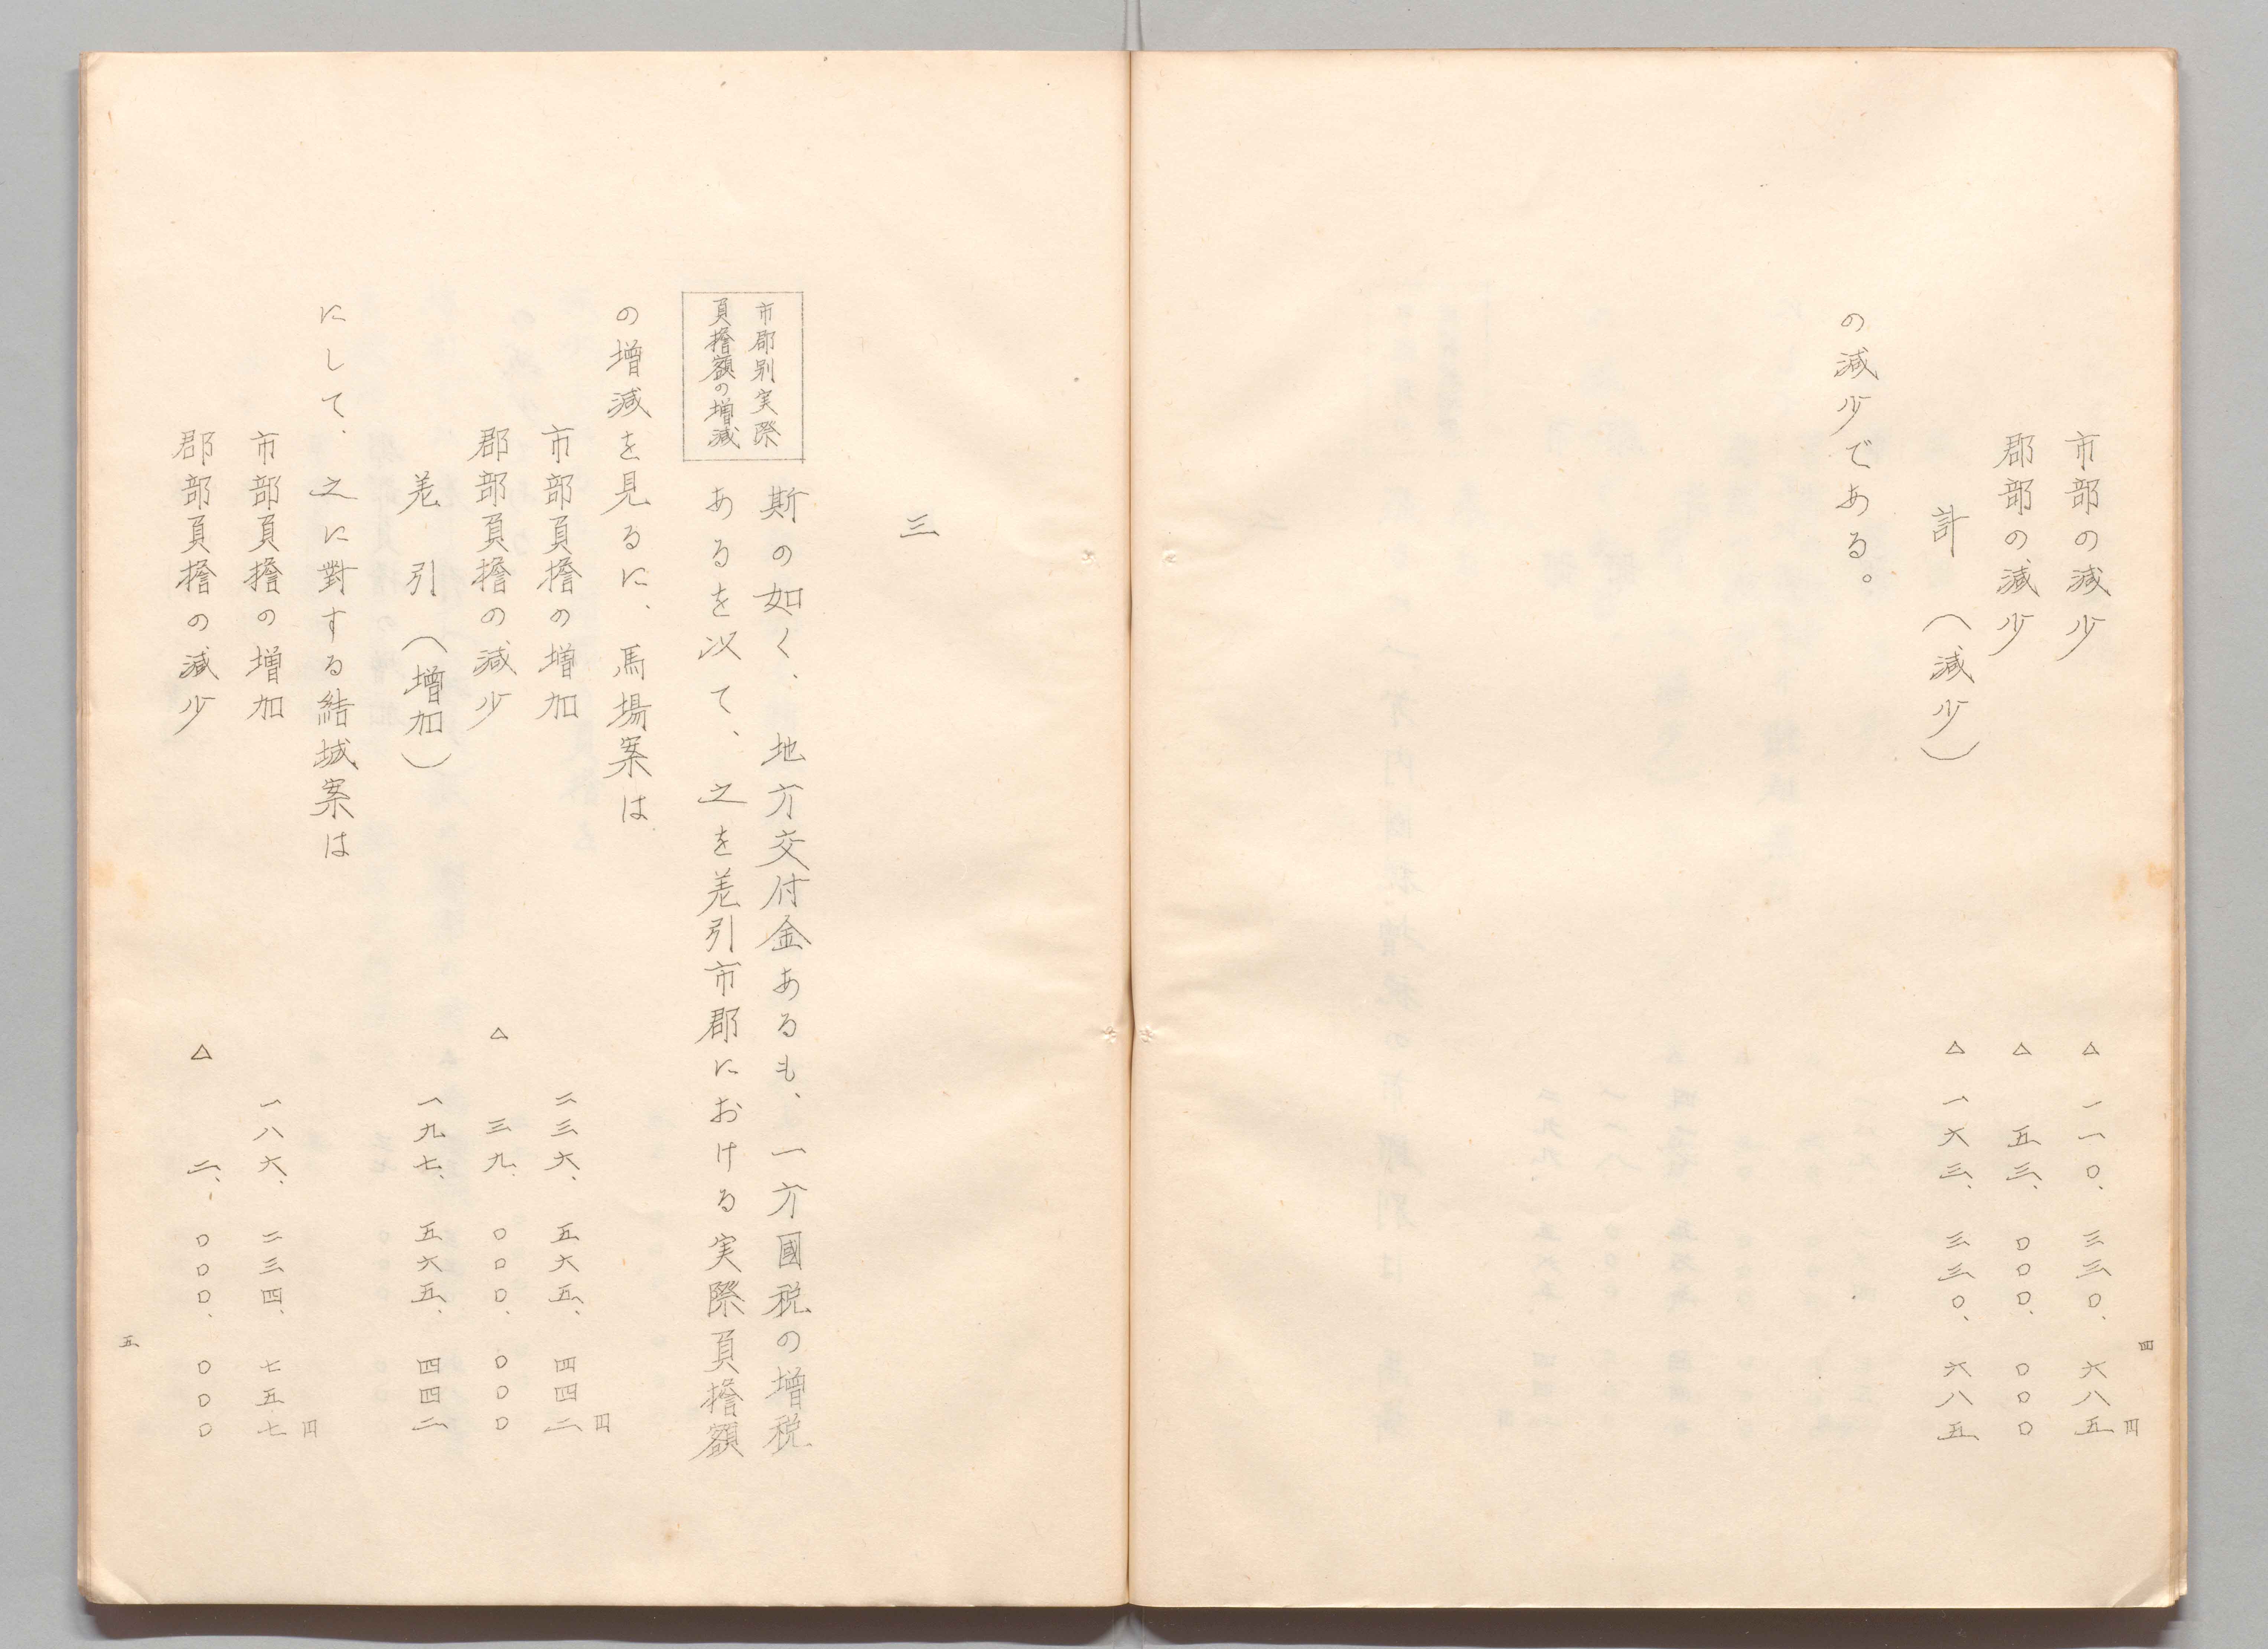 市部の減少 △ 一一〇、三三〇、六八五円
郡部の減少 △ 五三、〇〇〇、〇〇〇
計(減少) △ 一六三、三三〇、六八五
の減少である。
四
三
市郡別実際
負擔額の増減
斯の如く、地方交付金あるも、一方國税の増税
あるを以て、之を差引市郡における実際負擔額
の増減を見るに、馬場案は
市部負擔の増加 二三六、五六五、四四二円
郡部負擔の減少 △ 三九、〇〇〇、〇〇〇
差引(増加) 一九七、五六五、四四二
にして、之に對する結城案は
市部負擔の増加 一八六、二三四、七五七円
郡部負擔の減少 △ 二、〇〇〇、〇〇〇
五